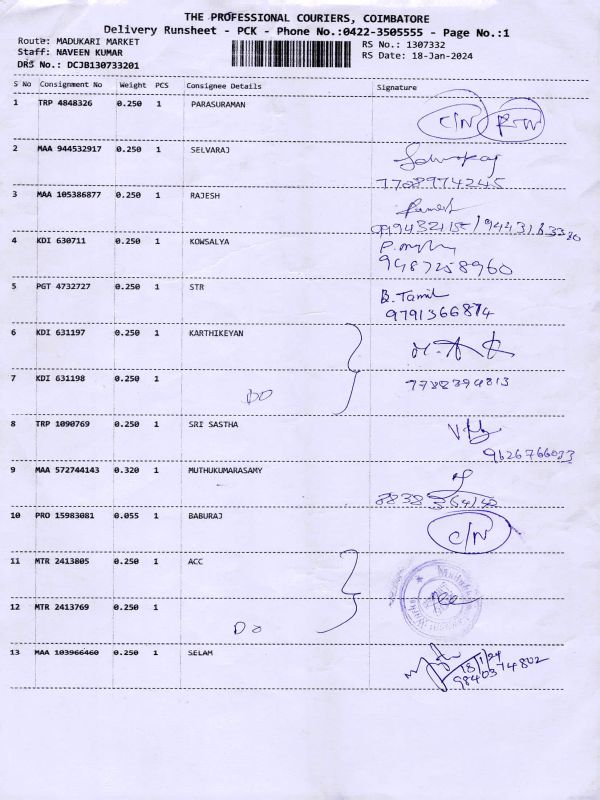 THE PROFESSIONAL COURIERS, COIMBATORE
Delivery Runsheet - PCK - Phone No.:0422-3505555 - Page No.:1
Route: MADUKARI MARKET RS No.: 1307332
Staff: NAVEEN KUMAR RS Date: 18-Jan-2024
DRS No.: DCJB130733201
S No Consignment No Weight PCS Consignee Details Signature
1 TRP 4848326 0.250 1 PARASURAMAN C/N
2 MAA 944532917 0.250 1 SELVARAJ
3 MAA 105386877 0.250 1 RAJESH
4 KDI 630711 0.250 1 KOWSALYA
9487258960
5 PGT 4732727 0.250 1 STR B.Tamil
9791366874
6 KDI 631197 0.250 1 KARTHIKEYAN
7 KDI 631198 0.250 1 DO 7738394813
8 TRP 1090769 0.250 1 SRI SASTHA
9626766033
9 MAA 572744143 0.320 1 MUTHUKUMARASAMY
10 PRO 15983081 0.055 1 BABURAJ C/N
11 MTR 2413805 0.250 1 ACC
12 MTR 2413769 0.250 1 Do
13 MAA 103966460 0.250 1 SELAM
18/1/24
9840374802